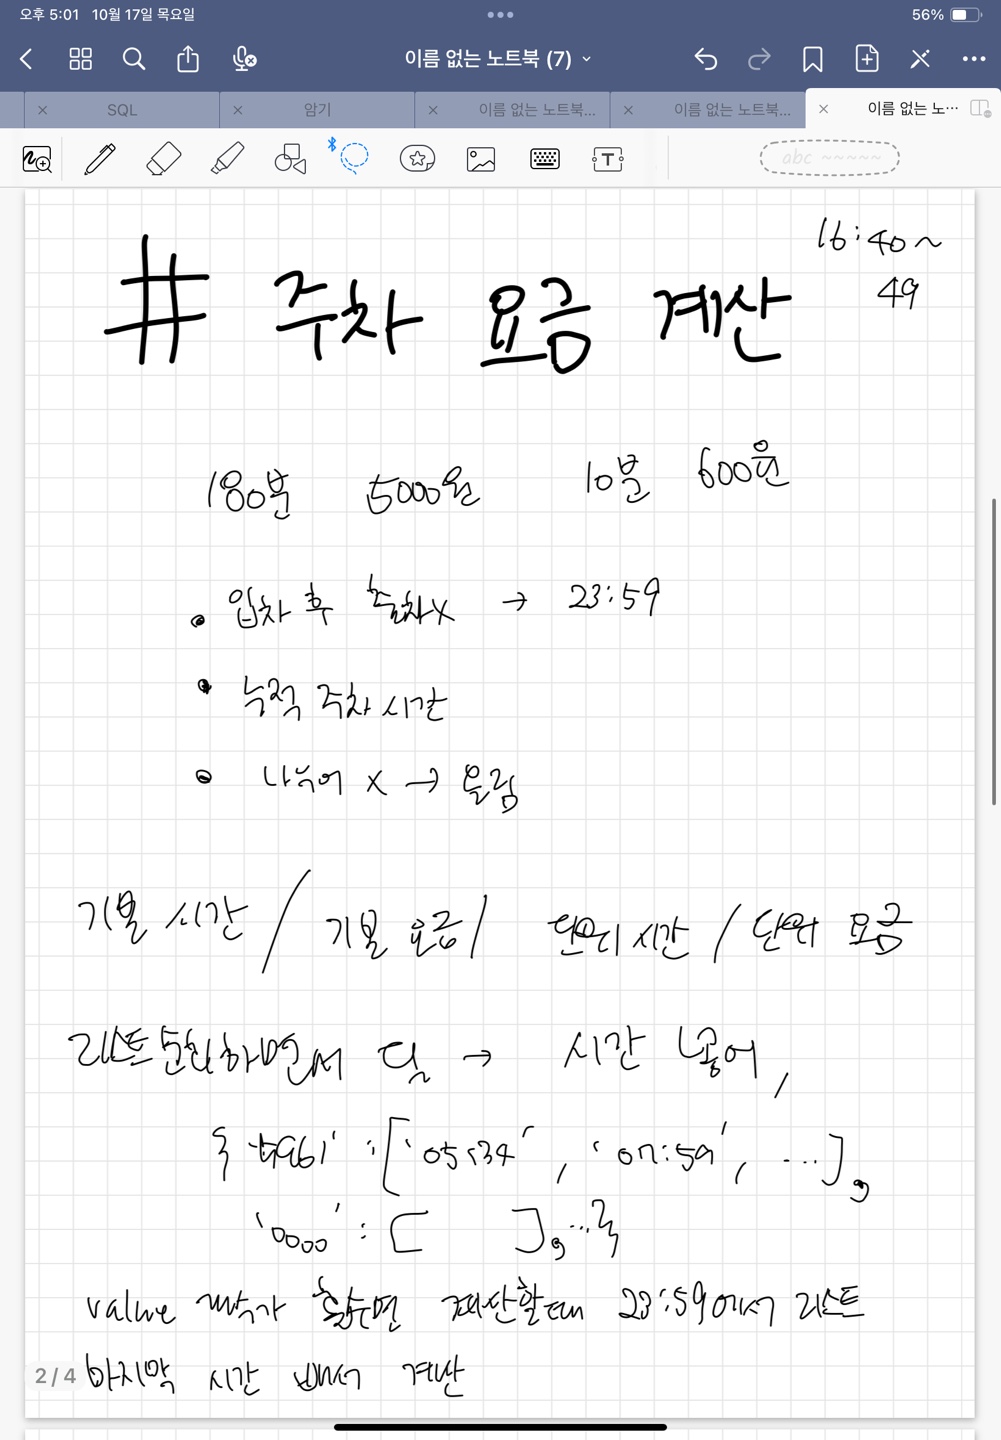 오후 5:01 10월 17일 목요일 56%
이름 없는 노트북 (7)
SQL 암기 이름 없는 노트북... 이름 없는 노트북... 이름 없는 노...
T
abc
16:40~
49
# 주차 요금 계산
180분 5000원 10분 600원
• 입차 후 출차X → 23:59
• 누적 주차 시간
• 나누어 X → 올림
기본 시간 / 기본 요금 / 단위 시간 / 단위 요금
리스트 순회하면서 딕 → 시간 넣어,
{ '5961' : ['05:34', '07:59', ...],
'0000' : [ ], ...}
value 개수가 홀수면 계산할때 23:59에서 리스트
마지막 시간 빼서 계산
2 / 4